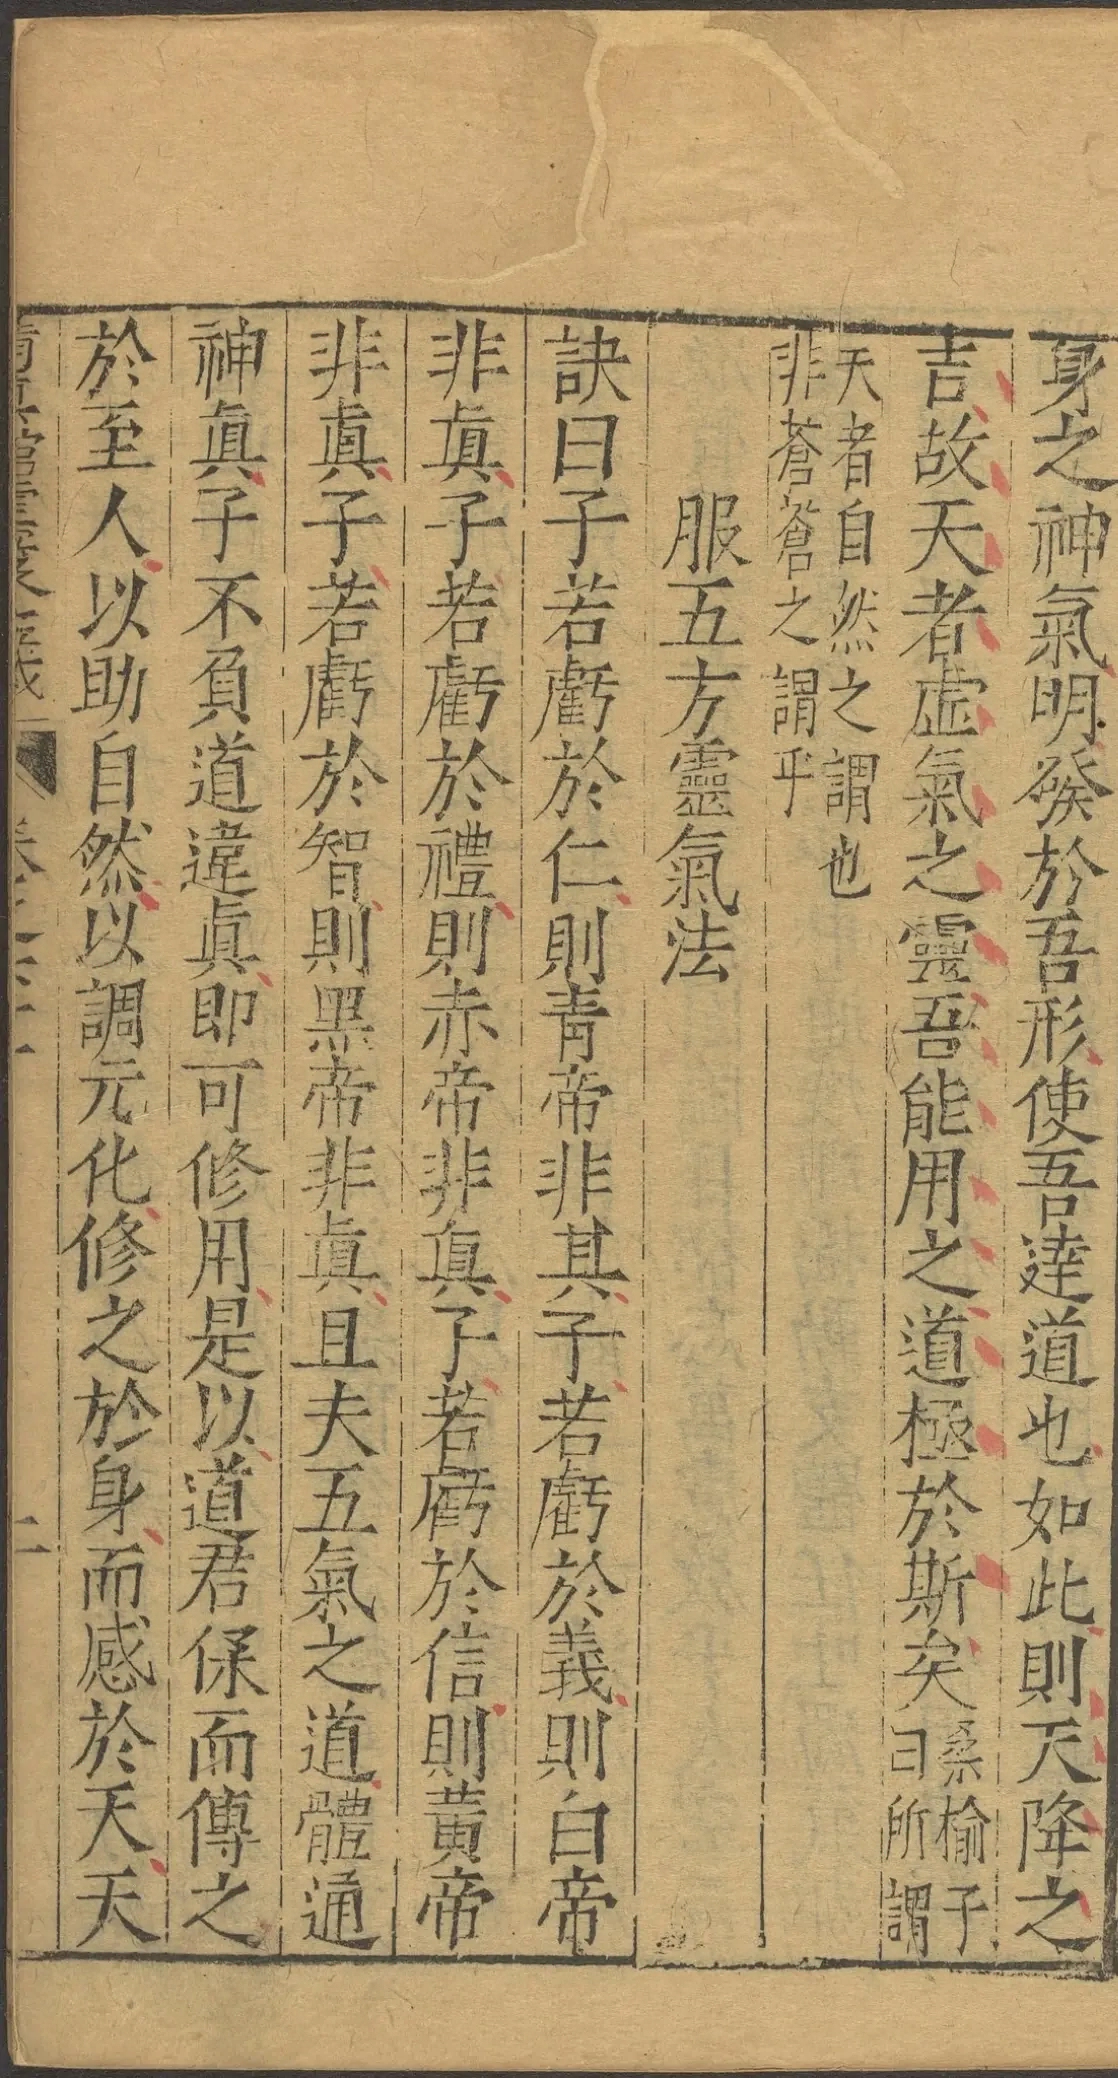 身之神氣明發於吾形使吾達道也如此則天降之
吉故天者虛氣之靈吾能用之道極於斯矣桑榆子
曰所謂
天者自然之謂也
非蒼蒼之謂乎
服五方靈氣法
訣曰子若虧於仁則靑帝非其子若虧於義則白帝
非眞子若虧於禮則赤帝非眞子若虧於信則黃帝
非眞子若虧於智則黑帝非眞且夫五氣之道體通
神眞子不負道違眞即可修用是以道君保而傳之
於至人以助自然以調元化修之於身而感於天天
二